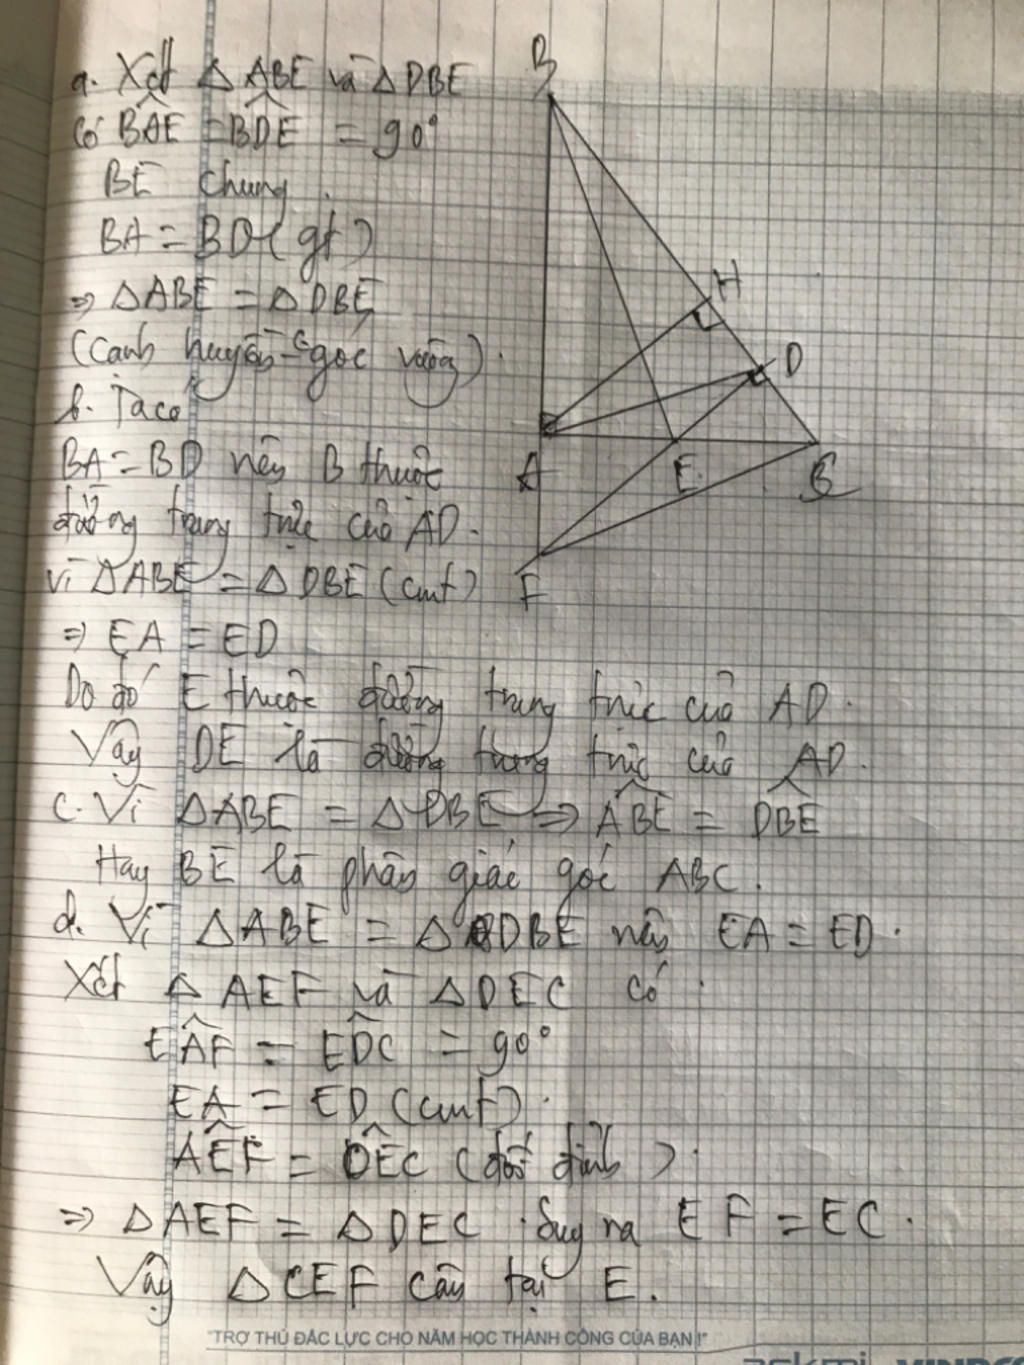 a. Xét △ABE và △DBE
Có BÂE = BD̂E = 90°
BE chung.
BA = BD (gt)
⇒ △ABE = △DBE
(cạnh huyền - góc vuông).
b. Ta có
BA = BD nên B thuộc
đường trung trực của AD.
Vì △ABE = △DBE (cmt)
⇒ EA = ED
Do đó E thuộc đường trung trực của AD.
Vậy DE là đường trung trực của AD.
c. Vì △ABE = △DBE ⇒ AB̂E = DB̂E
Hay BE là phân giác góc ABC.
d. Vì △ABE = △DBE nên EA = ED.
Xét △AEF và △DEC có
EÂF = ED̂C = 90°
EA = ED (cmt).
AÊF = DÊC (đối đỉnh).
⇒ △AEF = △DEC. Suy ra EF = EC.
Vậy △CEF cân tại E.
B
H
D
A
E
C
F
"TRỢ THỦ ĐẮC LỰC CHO NĂM HỌC THÀNH CÔNG CỦA BẠN !"